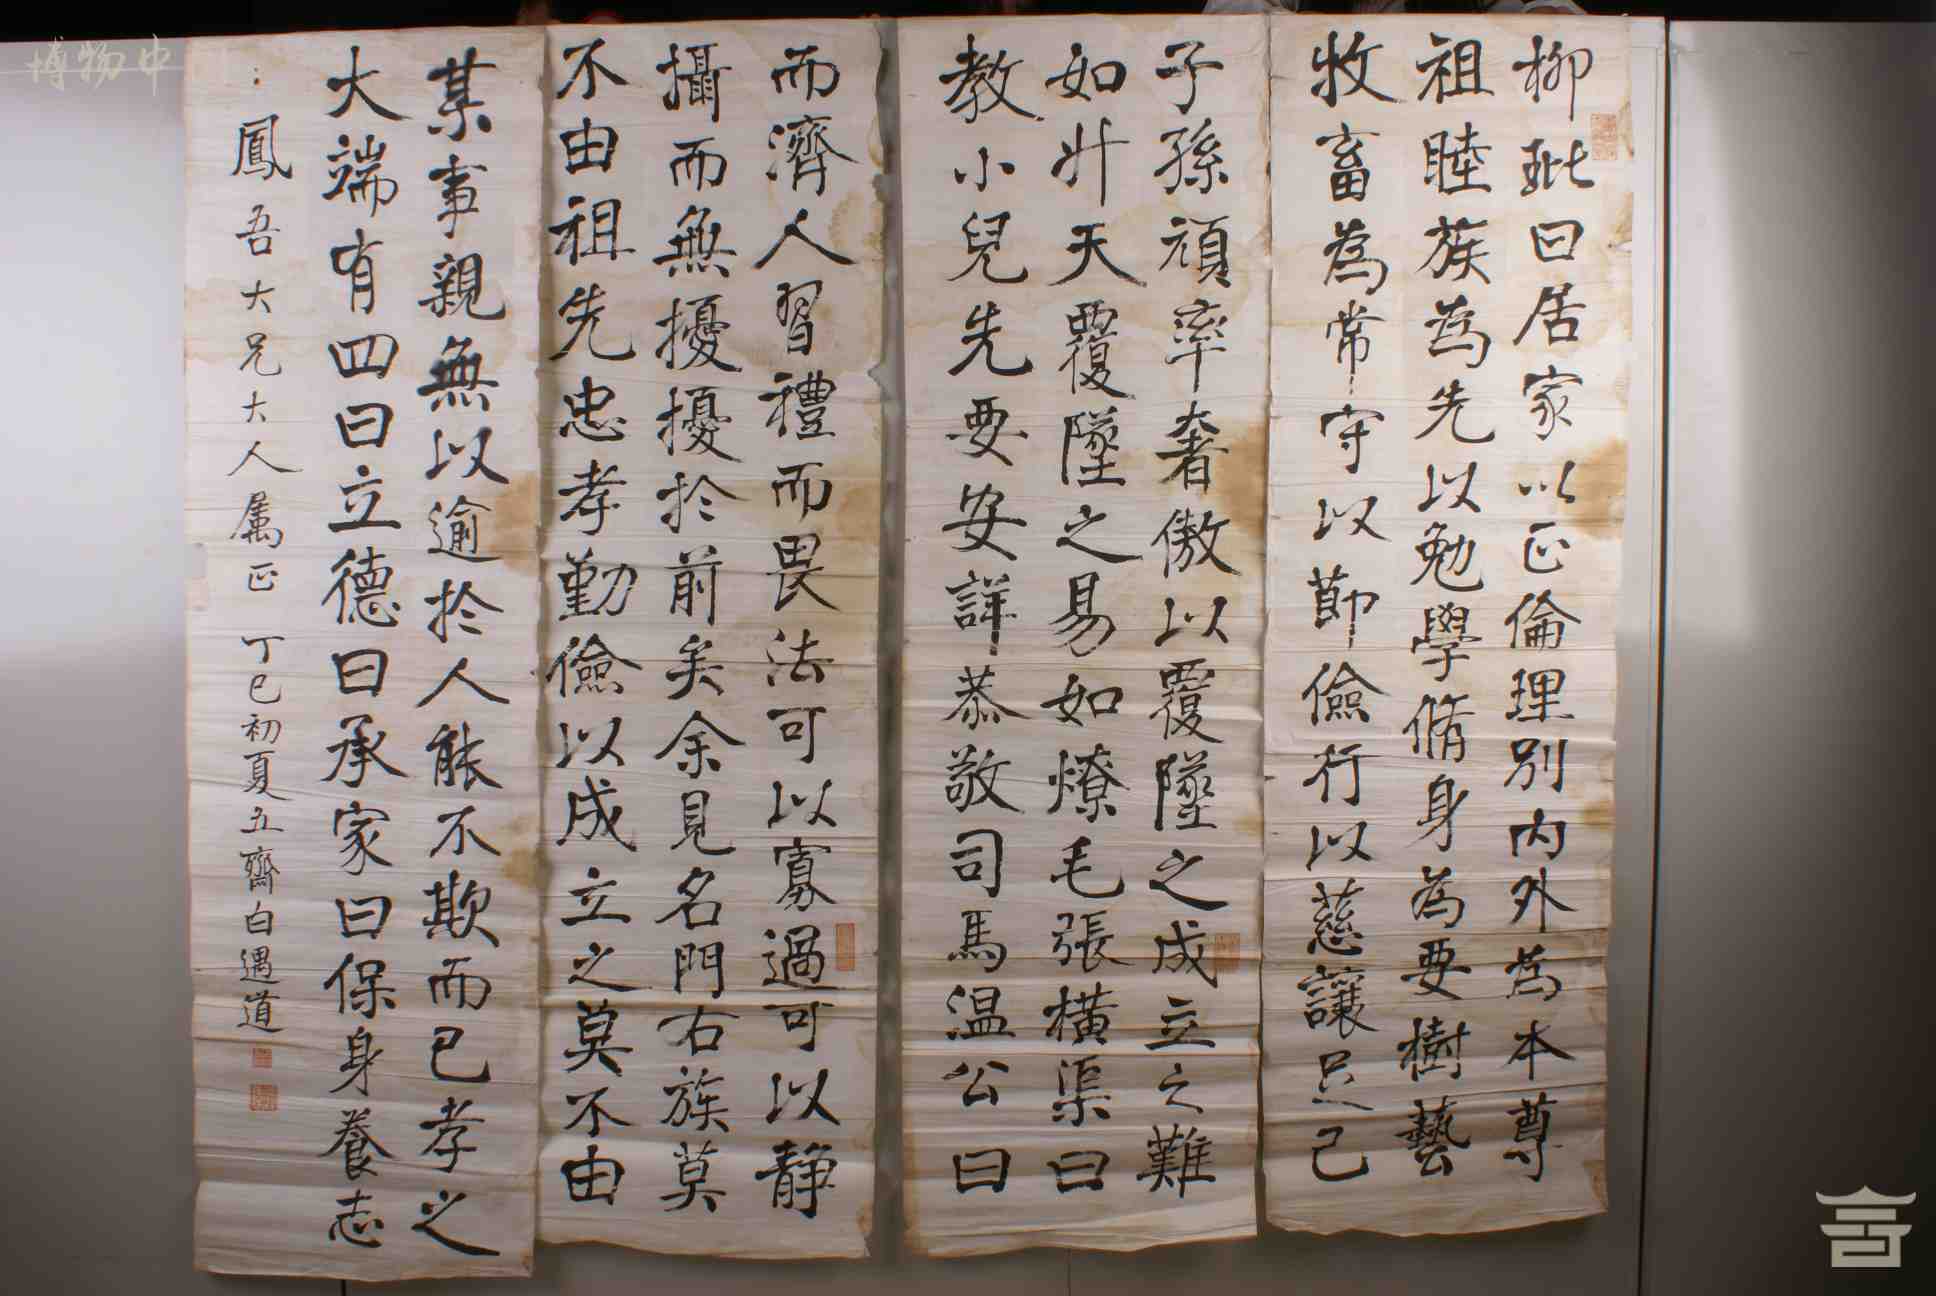 柳玭曰居家以正倫理別內外為本尊
祖睦族為先以勉學脩身為要樹藝
牧畜為常守以節儉行以慈讓足己
而濟人習禮而畏法可以寡過可以靜
攝而無擾擾於前矣余見名門右族莫
不由祖先忠孝勤儉以成立之莫不由
子孫頑率奢傲以覆墜之成立之難
如升天覆墜之易如燎毛張橫渠曰
教小兒先要安詳恭敬司馬温公曰
某事親無以逾於人能不欺而已孝之
大端有四曰立德曰承家曰保身養志
鳳吾大兄大人属正 丁巳初夏五齋白遇道
博物中